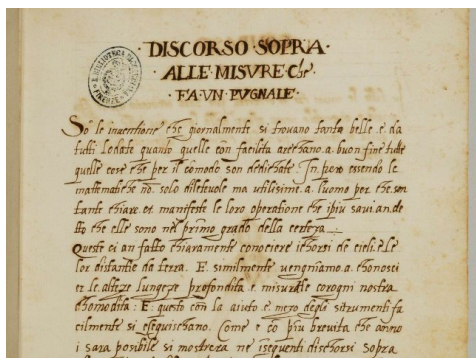 DISCORSO SOPRA
ALLE MISURE Che
FA VN PVGNALE
So le inuentione che giornalmente si trouano tanto belle e da
tutti lodate quanto quelle con facilita arechano a buon fine tutte
quelle cose che per il comodo son dedichate In pero essendo le
mattematiche no solo diletuole ma utilisime a luomo per che son
tante chiare et manifeste le loro operatione che i piu saui an de
tto che elle sono nel primo grado della certeza
Queste ci an fatto chiaramente conosciere i chorsi de cieli e le
lor distantie da terra E similmente uengniamo a chonosci
er le alteze lungeze profondita e misurale co rogni nostra
chomodita E questo con la aiuto e mezo degli strumenti fa
cilmente si esequischano Come e co piu breuita che
i sara posibile si mostrera ne sequenti dischorsi sopra